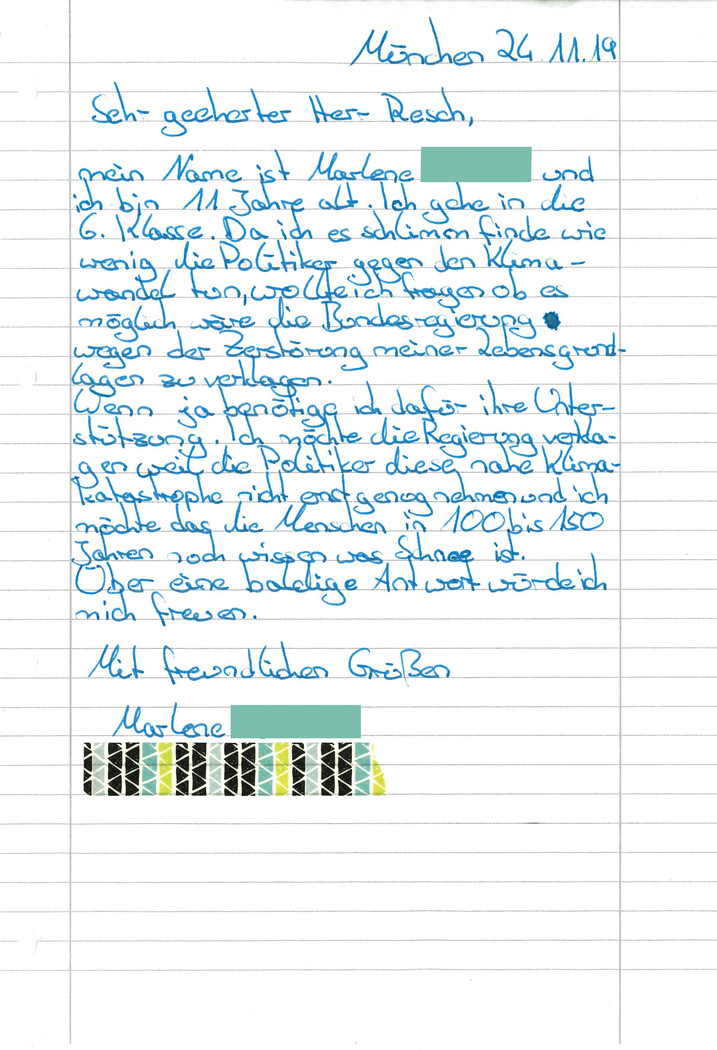 München 24.11.19
Sehr geeherter Herr Resch,
mein Name ist Marlene und
ich bin 11 Jahre alt. Ich gehe in die
6. Klasse. Da ich es schlimm finde wie
wenig die Politiker gegen den Klima-
wandel tun, wollte ich fragen ob es
möglich wäre die Bundesregierung
wegen der Zerstörung meiner Lebensgrund-
lagen zu verklagen.
Wenn ja benötige ich dafür ihre Unter-
stützung. Ich möchte die Regierung verkla-
gen weil die Politiker diese nahe Klima-
katastrophe nicht ernst genug nehmen und ich
möchte das die Menschen in 100 bis 150
Jahren noch wissen was Schnee ist.
Über eine baldige Antwort würde ich
mich freuen.
Mit freundlichen Grüßen
Marlene